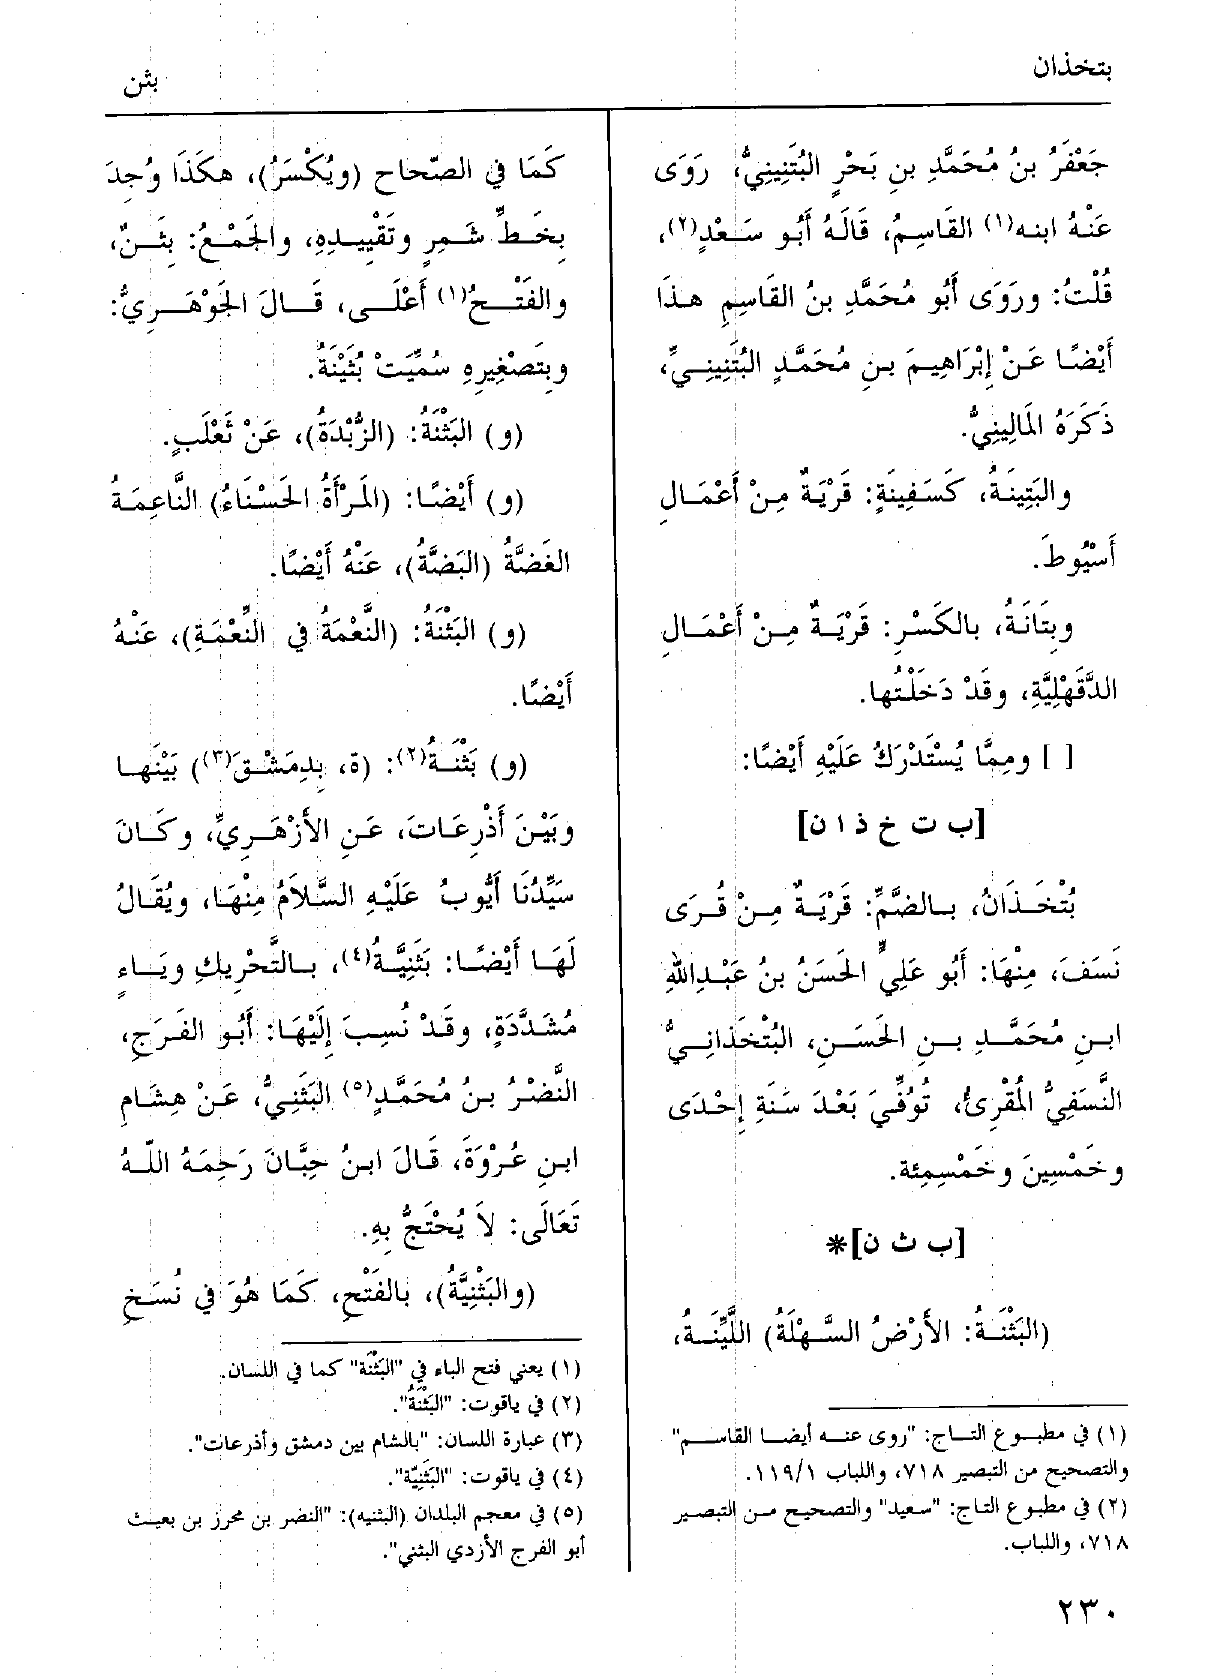 بتخذان
بثن
جَعْفَرُ بنُ مُحَمَّدِ بنِ بَحْرٍ البُتَنِينِيُّ، رَوَى
عَنْهُ ابنه(١) القَاسِمُ، قَالَهُ أَبُو سَعْدٍ(٢)،
قُلْتُ: ورَوَى أَبُو مُحَمَّدِ بنُ القَاسِمِ هذَا
أَيْضًا عَنْ إِبْرَاهِيمَ بنِ مُحَمَّدٍ البُتَنِينِيِّ،
ذَكَرَهُ المَالِينِيُّ.
والبَتِينَةُ، كَسَفِينَةٍ: قَرْيَةٌ مِنْ أَعْمَالِ
أَسْيُوطَ.
وبِتَانَةُ، بالكَسْرِ: قَرْيَةٌ مِنْ أَعْمَالِ
الدَّقَهْلِيَّةِ، وقَدْ دَخَلْتُها.
[ ] ومِمَّا يُسْتَدْرَكُ عَلَيْهِ أَيْضًا:
[ب ت خ ذ ا ن]
بُتْخَذَانُ، بالضَّمِّ: قَرْيَةٌ مِنْ قُرَى
نَسَفَ، مِنْهَا: أَبُو عَلِيٍّ الحَسَنُ بنُ عَبْدِاللهِ
ابنِ مُحَمَّدِ بنِ الحَسَنِ، البُتْخَذَانِيُّ
النَّسَفِيُّ المُقْرِئُ، تُوُفِّيَ بَعْدَ سَنَةِ إِحْدَى
وخَمْسِينَ وخَمْسِمِئة.
[ب ث ن]*
(البَثْنَةُ: الأَرْضُ السَّهْلَةُ) اللَّيِّنَةُ،
(١) في مطبوع التاج: "روى عنه أيضا القاسم"
والتصحيح من التبصير ٧١٨، واللباب ١١٩/١.
(٢) في مطبوع التاج: "سعيد" والتصحيح من التبصير
٧١٨، واللباب.
كَمَا في الصّحاح (ويُكْسَرُ)، هكَذَا وُجِدَ
بِخَطِّ شَمِرٍ وتَقْيِيدِهِ، والجَمْعُ: بِثَنٌ،
والفَتْحُ(١) أَعْلَى، قَالَ الجَوْهَرِيُّ:
وبِتَصْغِيرِهِ سُمِّيَتْ بُثَيْنَةُ.
(و) البَثْنَةُ: (الزُّبْدَةُ)، عَنْ ثَعْلَبٍ.
(و) أَيْضًا: (المَرْأَةُ الحَسْنَاءُ) النَّاعِمَةُ
الغَضَّةُ (البَضَّةُ)، عَنْهُ أَيْضًا.
(و) البَثْنَةُ: (النَّعْمَةُ في النِّعْمَةِ)، عَنْهُ
أَيْضًا.
(و) بَثْنَةُ(٢): (ة، بِدِمَشْقَ(٣)) بَيْنَها
وبَيْنَ أَذْرِعَاتَ، عَنِ الأَزْهَرِيِّ، وكَانَ
سَيِّدُنَا أَيُّوبُ عَلَيْهِ السَّلاَمُ مِنْهَا، ويُقَالُ
لَهَا أَيْضًا: بَثَنِيَّةُ(٤)، بالتَّحْرِيكِ ويَاءٍ
مُشَدَّدَةٍ، وقَدْ نُسِبَ إِلَيْهَا: أَبُو الفَرَجِ،
النَّضْرُ بنُ مُحَمَّدٍ(٥) البَثَنِيُّ، عَنْ هِشَامِ
ابنِ عُرْوَةَ، قَالَ ابنُ حِبَّانَ رَحِمَهُ اللهُ
تَعَالَى: لاَ يُحْتَجُّ بِهِ.
(والبَثْنِيَّةُ)، بالفَتْحِ، كَمَا هُوَ في نُسَخِ
(١) يعني فتح الباء في "البَثْنَة" كما في اللسان.
(٢) في ياقوت: "البَثْنَةُ".
(٣) عبارة اللسان: "بالشام بين دمشق وأذرعات".
(٤) في ياقوت: "البَثَنِيّة".
(٥) في معجم البلدان (البثنيه): "النضر بن محرز بن بعيث
أبو الفرج الأزدي البثني".
٢٣٠